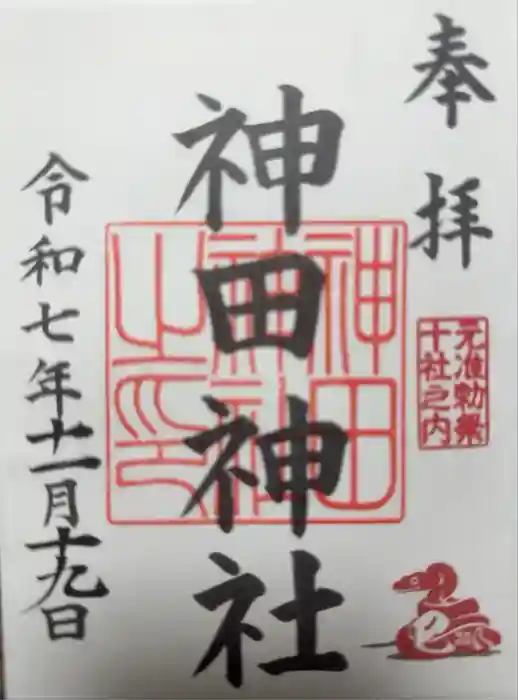 奉拝
元准勅祭
十社之内
神田神社
神田神社之印
令和七年十一月十九日
巳